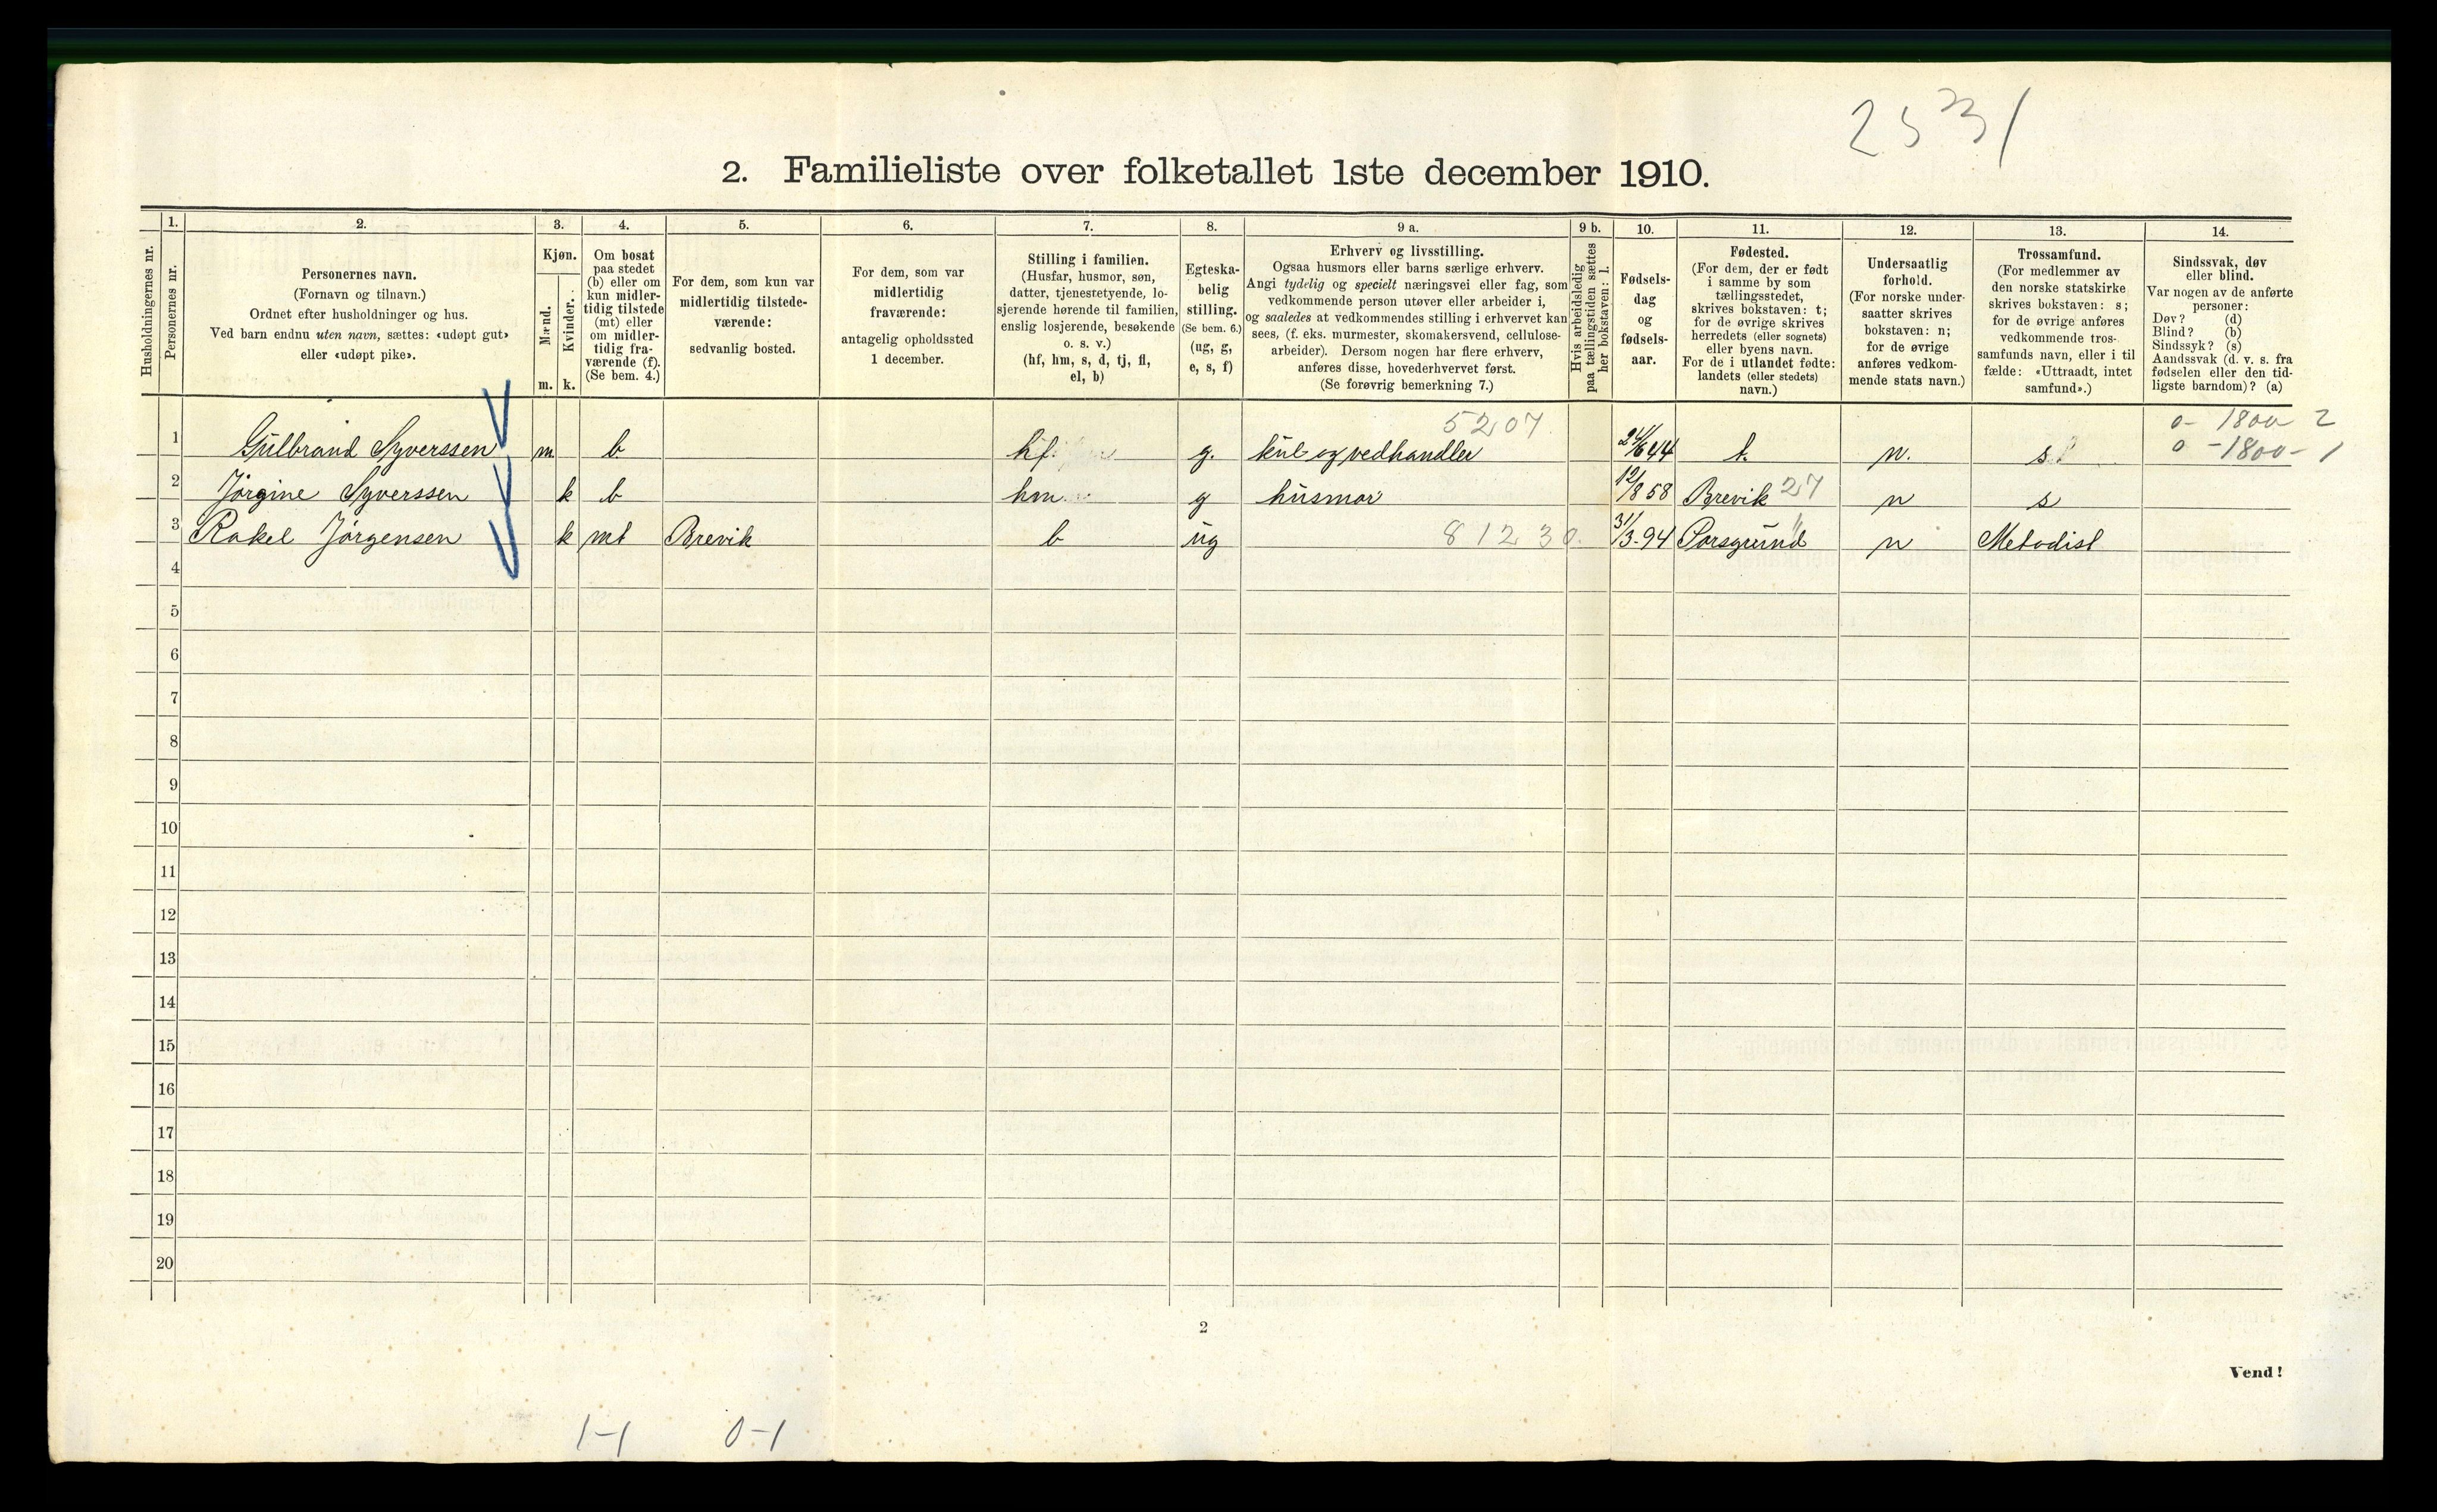 2531
2. Familieliste over folketallet 1ste december 1910.
Husholdningernes nr.
1. Personernes nr.
2. Personernes navn. (Fornavn og tilnavn.) Ordnet efter husholdninger og hus. Ved barn endnu uten navn, sættes: «udøpt gut» eller «udøpt pike».
3. Kjøn. Mænd. m. Kvinder. k.
4. Om bosat paa stedet (b) eller om kun midlertidig tilstede (mt) eller om midlertidig fraværende (f). (Se bem. 4.)
5. For dem, som kun var midlertidig tilstedeværende: sedvanlig bosted.
6. For dem, som var midlertidig fraværende: antagelig opholdssted 1 december.
7. Stilling i familien. (Husfar, husmor, søn, datter, tjenestetyende, losjerende hørende til familien, enslig losjerende, besøkende o. s. v.) (hf, hm, s, d, tj, fl, el, b)
8. Egteskabelig stilling. (Se bem. 6.) (ug, g, e, s, f)
9 a. Erhverv og livsstilling. Ogsaa husmors eller barns særlige erhverv. Angi tydelig og specielt næringsvei eller fag, som vedkommende person utøver eller arbeider i, og saaledes at vedkommendes stilling i erhvervet kan sees, (f. eks. murmester, skomakersvend, cellulosearbeider). Dersom nogen har flere erhverv, anføres disse, hovederhvervet først. (Se forøvrig bemerkning 7.)
9 b. Hvis arbeidsledig paa tællingstiden sættes her bokstaven: l.
10. Fødselsdag og fødselsaar.
11. Fødested. (For dem, der er født i samme by som tællingsstedet, skrives bokstaven: t; for de øvrige skrives herredets (eller sognets) eller byens navn. For de i utlandet fødte: landets (eller stedets) navn.)
12. Undersaatlig forhold. (For norske undersaatter skrives bokstaven: n; for de øvrige anføres vedkommende stats navn.)
13. Trossamfund. (For medlemmer av den norske statskirke skrives bokstaven: s; for de øvrige anføres vedkommende trossamfunds navn, eller i tilfælde: «Uttraadt, intet samfund».)
14. Sindssvak, døv eller blind. Var nogen av de anførte personer: Døv? (d) Blind? (b) Sindssyk? (s) Aandssvak (d. v. s. fra fødselen eller den tidligste barndom)? (a)
5207 0-1800-2
1 Gulbrand Syverssen m. b. hf. g. kul og vedhandler 24/6 44 t. n. s 0-1800-1
2 Jørgine Syverssen k b hm. g husmor 12/8 58 Brevik 27 n s
3 Rakel Jørgensen k mt Brevik b ug 81230. 31/3-94 Porsgrund n Metodist
4
5
6
7
8
9
10
11
12
13
14
15
16
17
18
19
20
2
Vend!
1-1 0-1